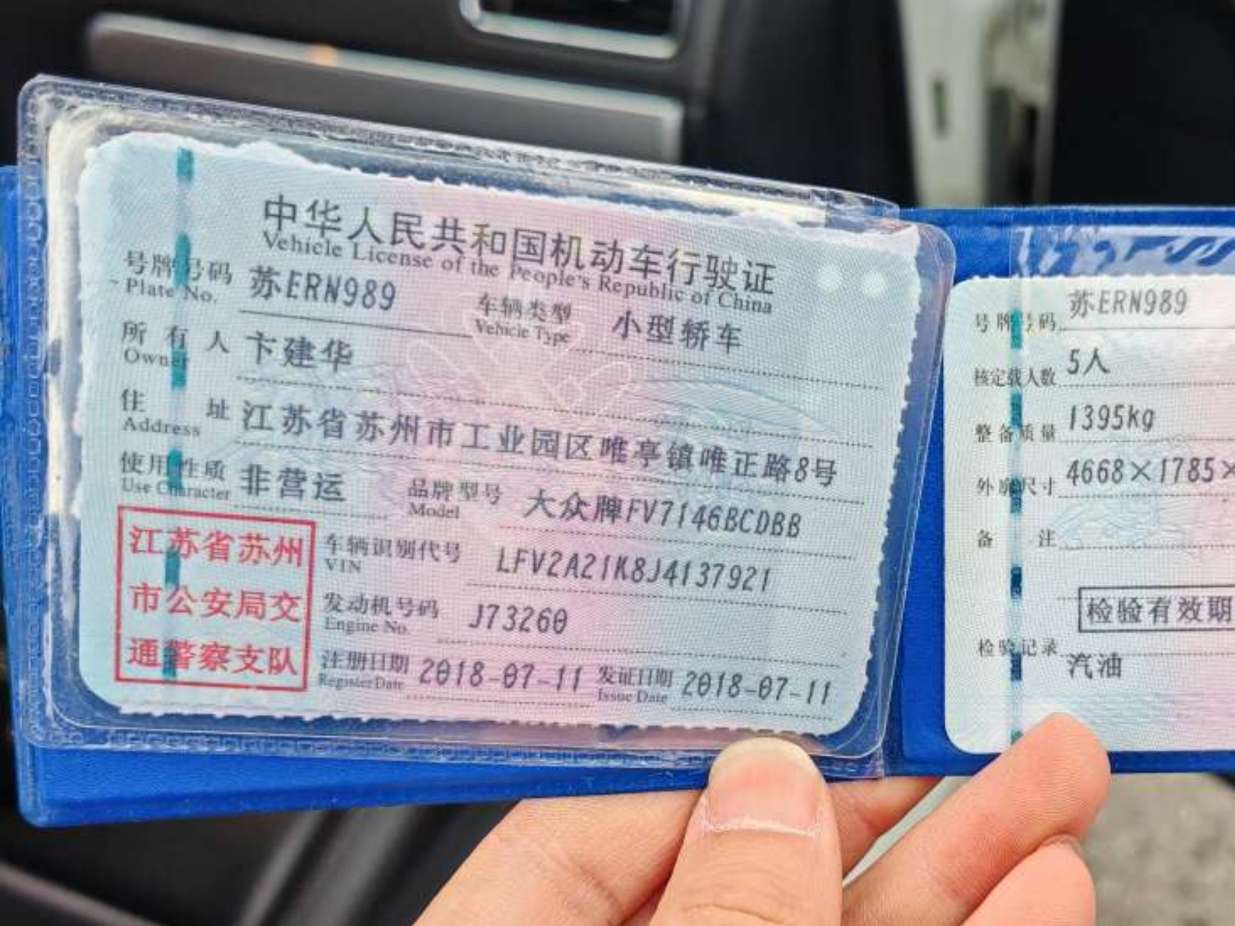 中华人民共和国机动车行驶证
Vehicle License of the People's Republic of China
号牌号码 苏ERN989 车辆类型 小型轿车
Plate No. Vehicle Type
所有人 卞建华
Owner
住址 江苏省苏州市工业园区唯亭镇唯正路8号
Address
使用性质 非营运 品牌型号 大众牌FV7146BCDBB
Use Character Model
江苏省苏州
市公安局交
通警察支队
车辆识别代号 LFV2A21K8J4137921
VIN
发动机号码 J73260
Engine No.
注册日期 2018-07-11 发证日期 2018-07-11
Register Date Issue Date
号牌号码 苏ERN989
核定载人数 5人
整备质量 1395kg
外廓尺寸 4668×1785×
备注
检验有效期
检验记录
汽油